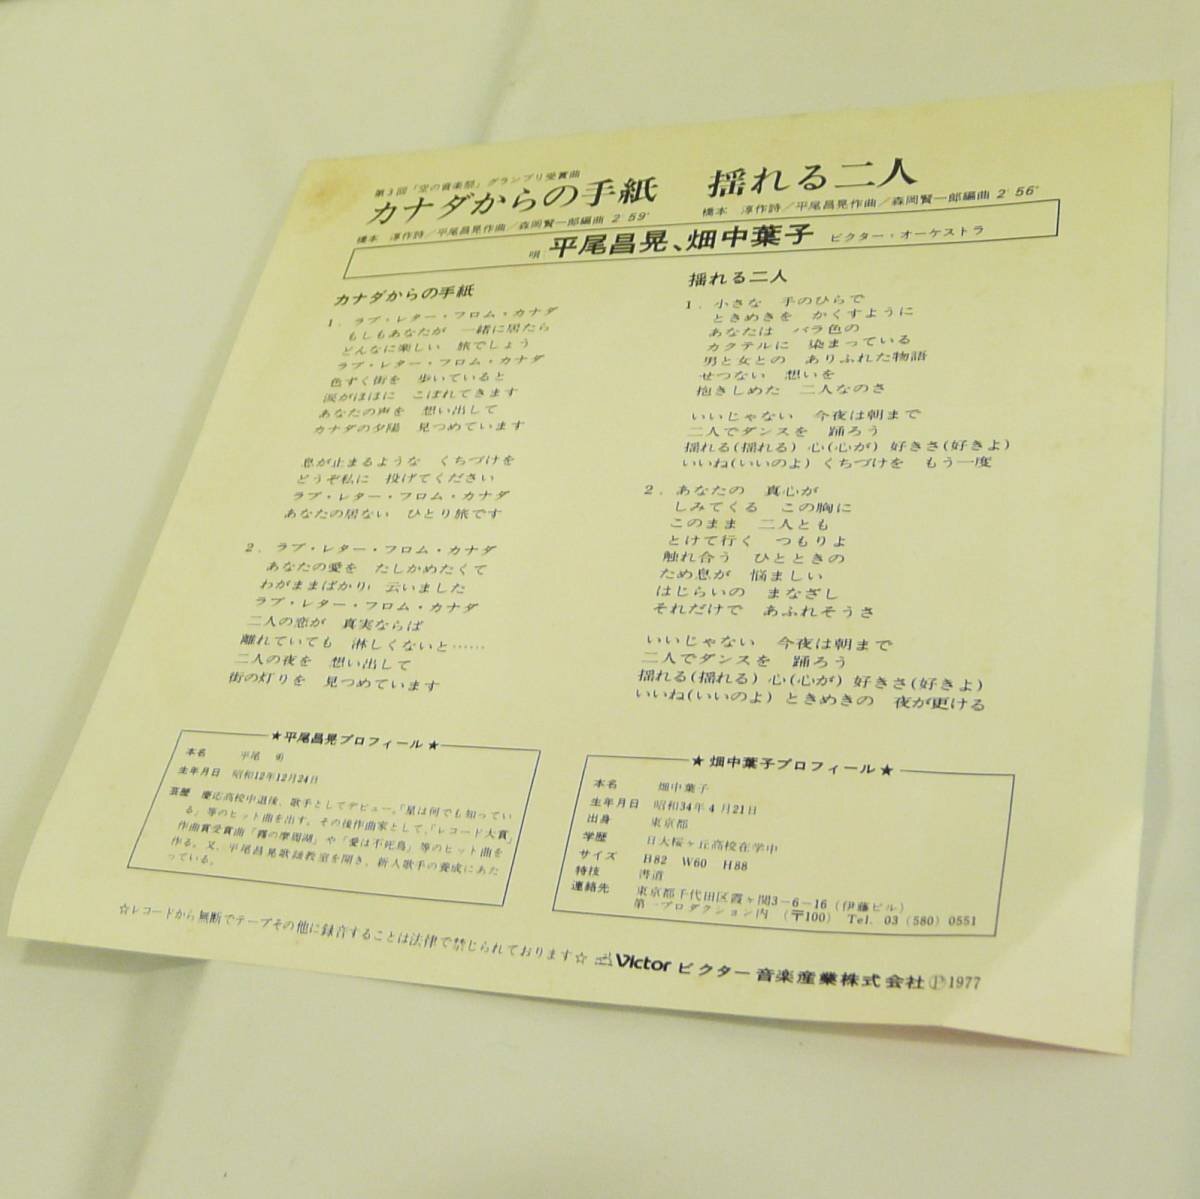 第3回「空の音楽祭」グランプリ受賞曲
カナダからの手紙
橋本 淳作詩/平尾昌晃作曲/森岡賢一郎編曲 2'59"
揺れる二人
橋本 淳作詩/平尾昌晃作曲/森岡賢一郎編曲 2'56"
唄 平尾昌晃、畑中葉子 ビクター・オーケストラ
カナダからの手紙
1. ラブ・レター・フロム・カナダ
もしもあなたが 一緒に居たら
どんなに楽しい 旅でしょう
ラブ・レター・フロム・カナダ
色ずく街を 歩いていると
涙がほほに こぼれてきます
あなたの声を 想い出して
カナダの夕陽 見つめています
息が止まるような くちづけを
どうぞ私に 投げてください
ラブ・レター・フロム・カナダ
あなたの居ない ひとり旅です
2. ラブ・レター・フロム・カナダ
あなたの愛を たしかめたくて
わがままばかり 云いました
ラブ・レター・フロム・カナダ
二人の恋が 真実ならば
離れていても 淋しくないと……
二人の夜を 想い出して
街の灯りを 見つめています
揺れる二人
1. 小さな 手のひらで
ときめきを かくすように
あなたは バラ色の
カクテルに 染まっている
男と女との ありふれた物語
せつない 想いを
抱きしめた 二人なのさ
いいじゃない 今夜は朝まで
二人でダンスを 踊ろう
揺れる(揺れる) 心(心が) 好きさ(好きよ)
いいね(いいのよ) くちづけを もう一度
2. あなたの 真心が
しみてくる この胸に
このまま 二人とも
とけて行く つもりよ
触れ合う ひとときの
ため息が 悩ましい
はじらいの まなざし
それだけで あふれそうさ
いいじゃない 今夜は朝まで
二人でダンスを 踊ろう
揺れる(揺れる) 心(心が) 好きさ(好きよ)
いいね(いいのよ) ときめきの 夜が更ける
★平尾昌晃プロフィール★
本名 平尾 勇
生年月日 昭和12年12月24日
芸歴 慶応高校中退後、歌手としてデビュー。「星は何でも知ってい
る」等のヒット曲を出す。その後作曲家として、「レコード大賞」
作曲賞受賞曲「霧の摩周湖」や「愛は不死鳥」等のヒット曲を
作る。又、平尾昌晃歌謡教室を開き、新人歌手の養成にあた
っている。
★畑中葉子プロフィール★
本名 畑中葉子
生年月日 昭和34年4月21日
出身 東京都
学歴 日大桜ヶ丘高校在学中
サイズ B82 W60 H88
特技 書道
連絡先 東京都千代田区霞ヶ関3-6-16(伊藤ビル)
第一プロダクション内 (〒100) Tel. 03(580)0551
☆レコードから無断でテープその他に録音することは法律で禁じられております☆
Victor ビクター音楽産業株式会社 Ⓟ1977